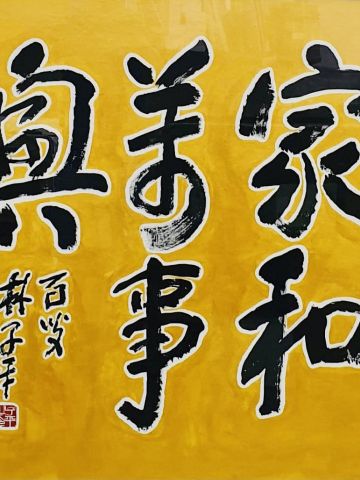 家和
萬事
興
百
子平